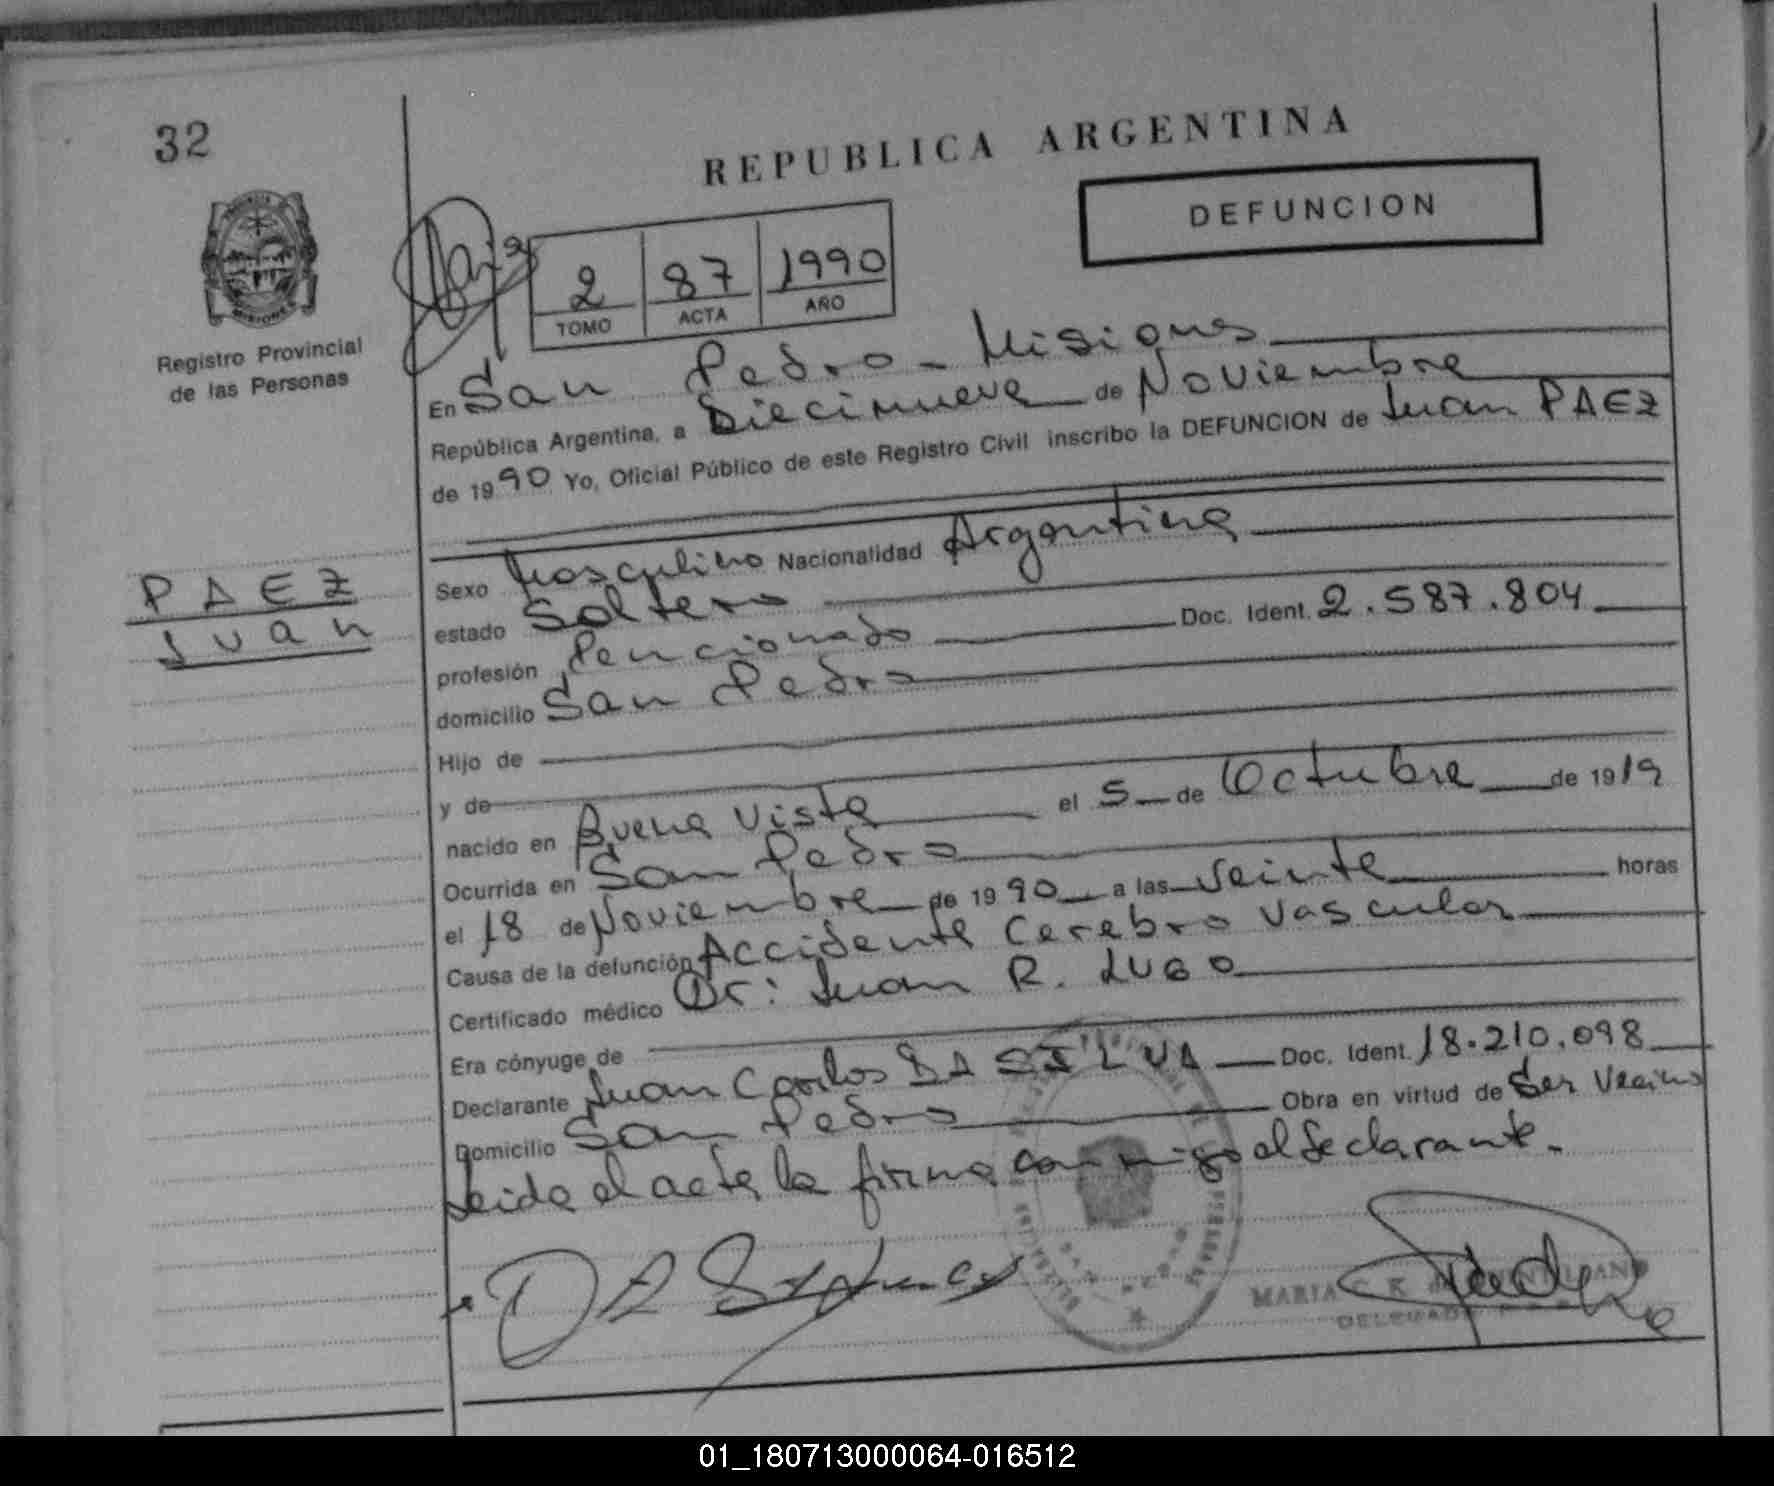 32
REPUBLICA ARGENTINA
DEFUNCION
2 87 1990
TOMO ACTA AÑO
Registro Provincial
de las Personas
En San Pedro - Misiones
República Argentina, a Diecinueve de Noviembre
de 1990 Yo, Oficial Público de este Registro Civil inscribo la DEFUNCION de Juan PAEZ
PAEZ
Juan
Sexo Masculino Nacionalidad Argentina
estado Soltero
profesión Pencionado Doc. Ident. 2.587.804
domicilio San Pedro
Hijo de
y de
nacido en Buena Vista el 5 de Octubre de 1919
Ocurrida en San Pedro
el 18 de Noviembre de 1990 a las veinte horas
Causa de la defunción Accidente Cerebro Vascular
Certificado médico Dr: Juan R. LUGO
Era cónyuge de
Declarante Juan Carlos DA SILVA Doc. Ident. 18.210.098
Domicilio San Pedro Obra en virtud de Ser Vecino
Leida el acta la firma conmigo el declarante.
MARIA C. K.
DELEGADA
01_180713000064-016512